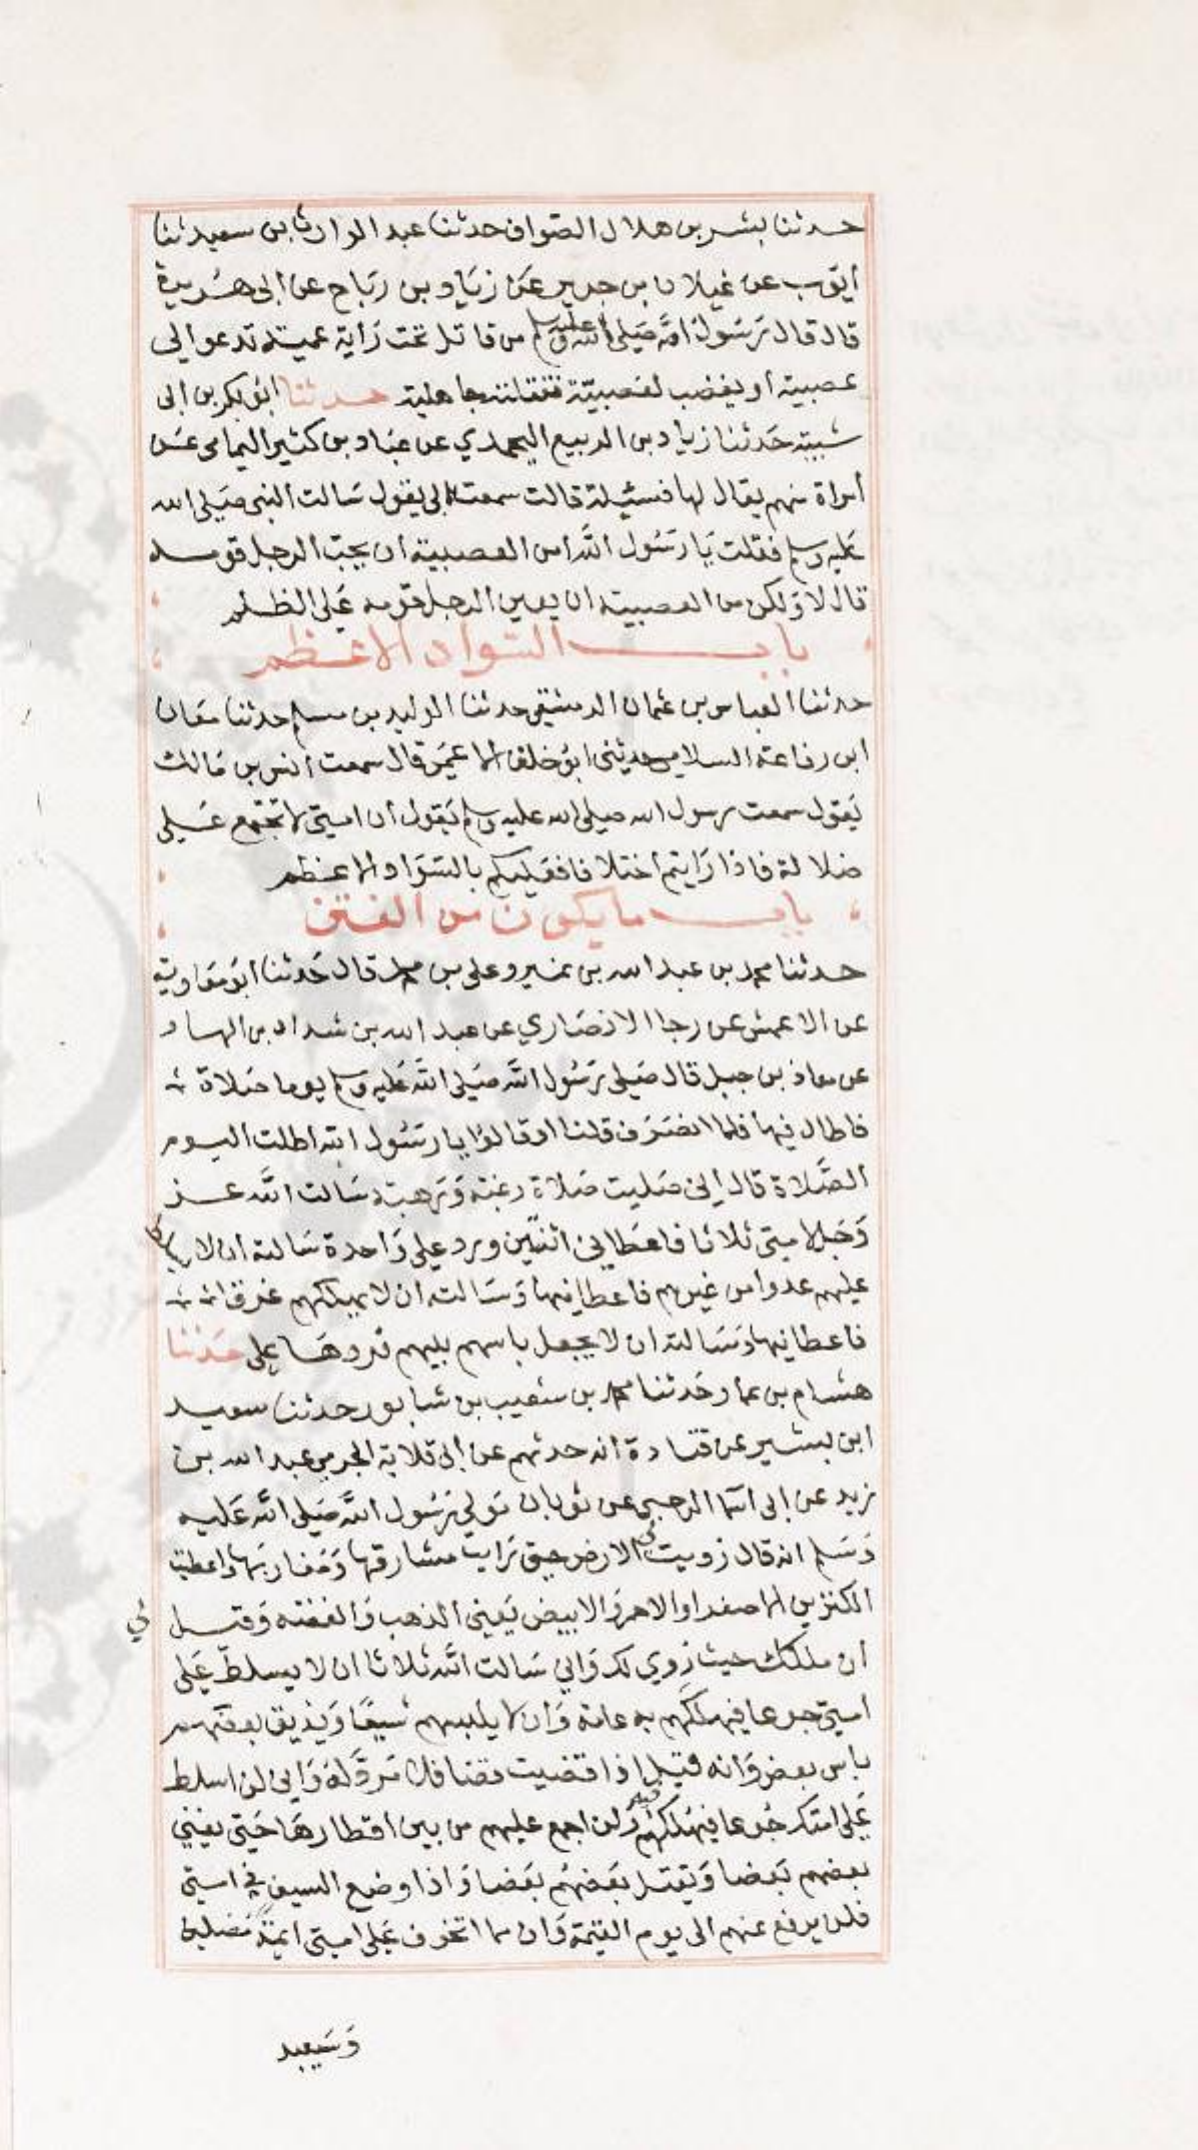 حدثنا بشر بن هلال الصواف حدثنا عبد الوارث بن سعيد ثنا
أيوب عن غيلان بن جرير عن زياد بن رباح عن ابى هريرة
قال قال رسول الله صلى الله عليه وسلم من قاتل تحت راية عمية تدعو الى
عصبية او يغضب لعصبية فقتلته جاهلية حدثنا ابو بكر بن ابى
شيبة حدثنا زياد بن الربيع اليحمدي عن عباد بن كثير اليمامى عن
امراة منهم يقال لها فسيلة قالت سمعت ابى يقول سالت النبى صلى الله
عليه وسلم فقلت يا رسول الله امن العصبية ان يحب الرجل قومه
قال لا ولكن من العصبية ان يعين الرجل قومه على الظلم
باب السواد الاعظم
حدثنا العباس بن عثمان الدمشقى حدثنا الوليد بن مسلم حدثنا معان
ابن رفاعة السلامى حدثنى ابو خلف الاعمى قال سمعت انس بن مالك
يقول سمعت رسول الله صلى الله عليه وسلم يقول ان امتى لا تجتمع على
ضلالة فاذا رايتم اختلافا فعليكم بالسواد الاعظم
باب ما يكون من الفتن
حدثنا محمد بن عبد الله بن نمير وعلى بن محمد قال حدثنا ابو معاوية
عن الاعمش عن رجا الانصاري عن عبد الله بن شداد بن الهاد
عن معاذ بن جبل قال صلى رسول الله صلى الله عليه وسلم يوما صلاة
فاطال فيها فلما انصرف قلنا او قالوا يا رسول الله اطلت اليوم
الصلاة قال انى صليت صلاة رغبة ورهبة سالت الله عز
وجل لامتى ثلاثا فاعطانى اثنتين ورد على واحدة سالته ان لا يسلط
عليهم عدوا من غيرهم فاعطانيها وسالته ان لا يهلكهم غرقا
فاعطانيها وسالته ان لا يجعل باسهم بينهم فردها على حدثنا
هشام بن عمار حدثنا محمد بن شعيب بن شابور حدثنا سعيد
ابن بشير عن قتادة انه حدثهم عن ابى قلابة الجرمى عبد الله بن
زيد عن ابى اسما الرحبى عن ثوبان مولى رسول الله صلى الله عليه
وسلم انه قال زويت لى الارض حتى رايت مشارقها ومغاربها واعطيت
الكنزين الاصفر او الاحمر والابيض يعنى الذهب والفضة وقيل لي
ان ملكك حيث زوي لك وانى سالت الله ثلاثا ان لا يسلط على
امتى جوعا فيهلكهم به عامة وان لا يلبسهم شيعا ويذيق بعضهم
باس بعض وانه قيل اذا قضيت قضا فلا مرد له وانى لن اسلط
على امتك جوعا فيهلكهم فيه ولن اجمع عليهم من بين اقطارها حتى يفني
بعضهم بعضا ويقتل بعضهم بعضا واذا وضع السيف في امتى
فلن يرفع عنهم الى يوم القيمة وان مما اتخوف على امتى ايمة مضلين
وسيعبد